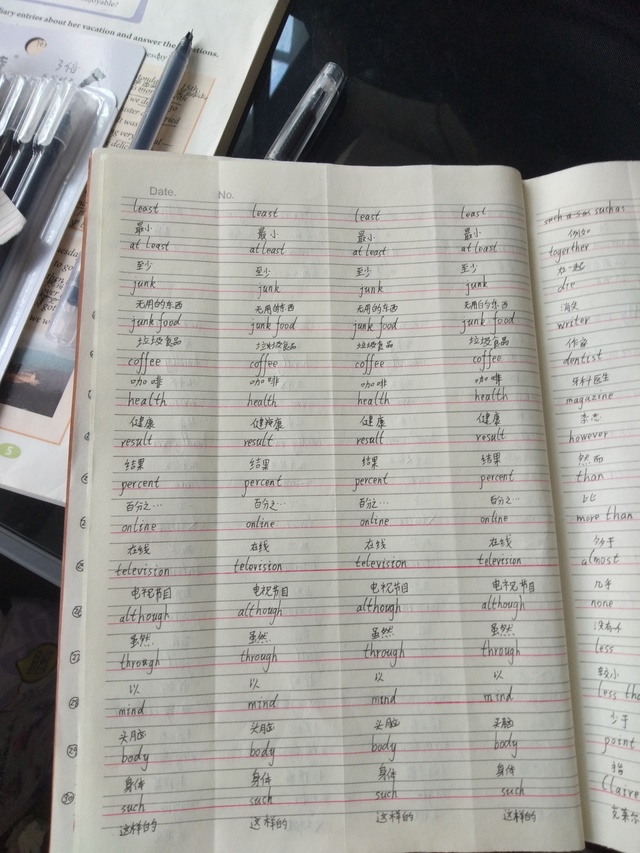 diary entries about her vacation and answer the questions.
Date. No.
least least least least
最小 最小 最小 最小
at least at least at least at least
至少 至少 至少 至少
junk junk junk junk
无用的东西 无用的东西 无用的东西 无用的东西
junk food junk food junk food junk food
垃圾食品 垃圾食品 垃圾食品 垃圾食品
coffee coffee coffee coffee
咖啡 咖啡 咖啡 咖啡
health health health health
健康 健康 健康 健康
result result result result
结果 结果 结果 结果
percent percent percent percent
百分之… 百分之… 百分之… 百分之…
online online online online
在线 在线 在线 在线
television television television television
电视节目 电视节目 电视节目 电视节目
although although although although
虽然 虽然 虽然 虽然
through through through through
以 以 以 以
mind mind mind mind
头脑 头脑 头脑 头脑
body body body body
身体 身体 身体 身体
such such such such
这样的 这样的 这样的 这样的
例如
togerther
在一起
die
消失
writer
作者
dentist
牙科医生
magazine
杂志
however
然而
than
比
more than
多于
almost
几乎
none
没有个
less
较小
less tha
少于
point
Claire
克莱尔
5